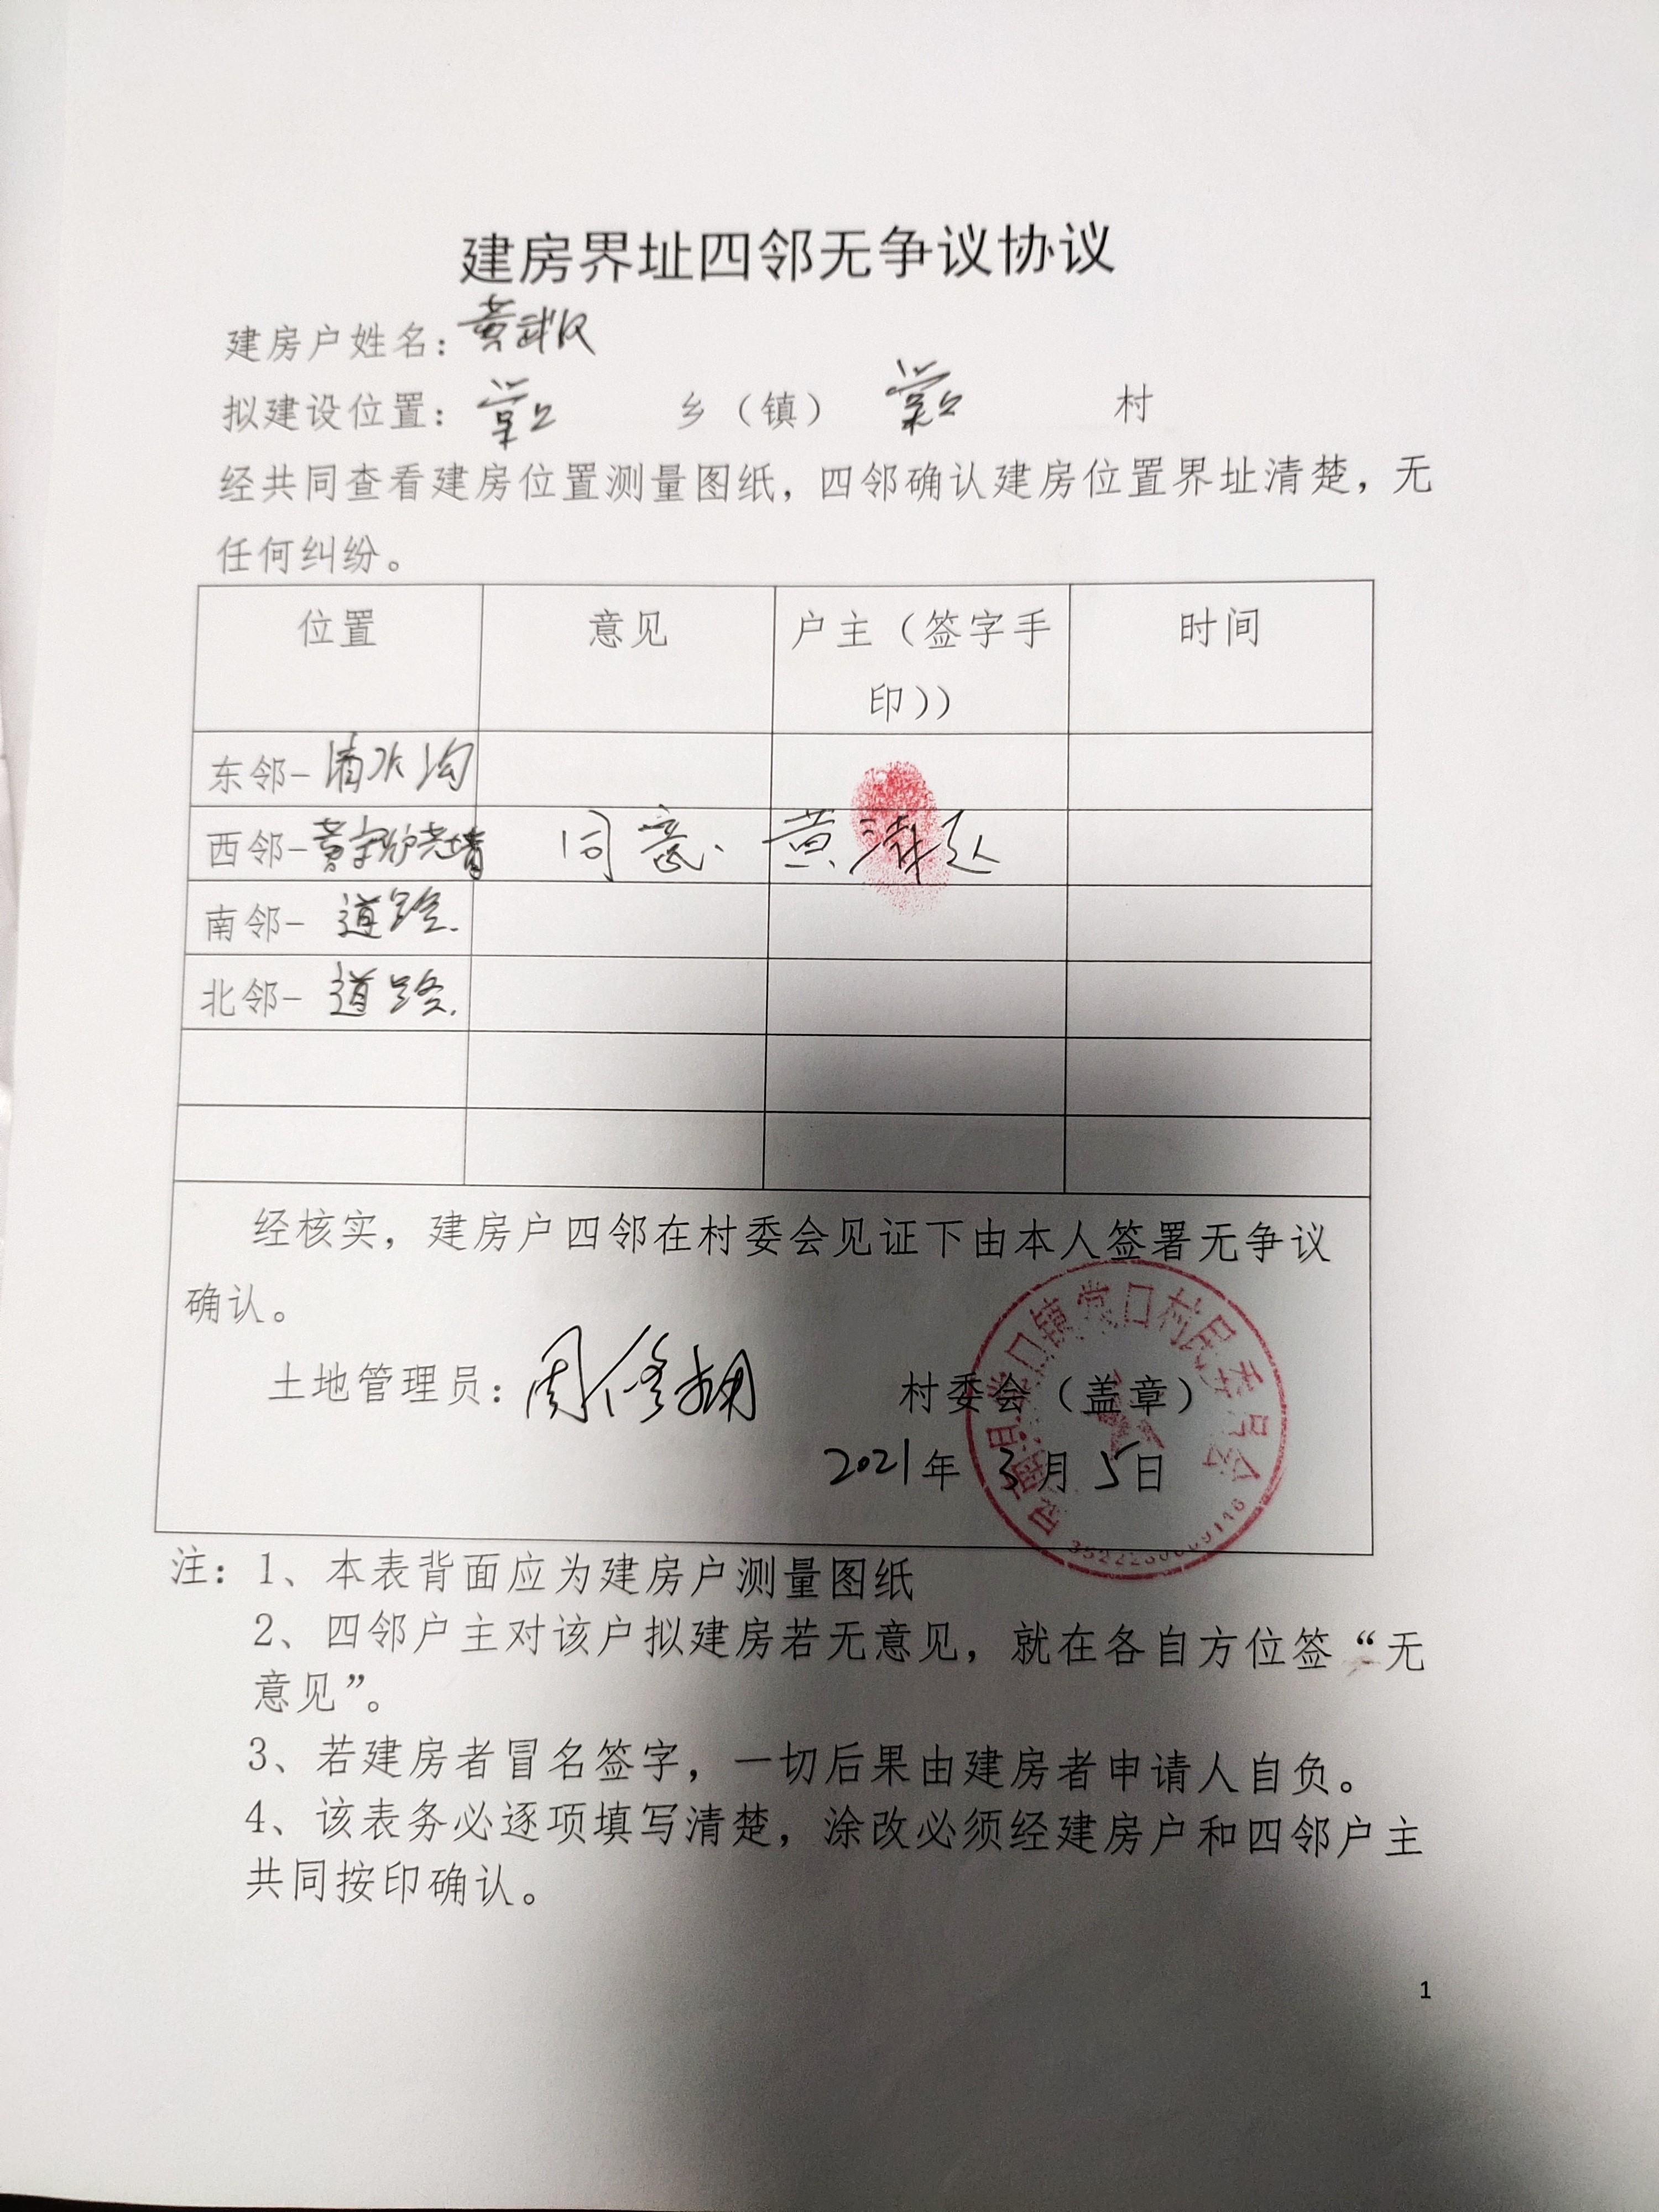 建房界址四邻无争议协议
建房户姓名：黄武汉
拟建设位置：棠口 乡（镇） 棠口 村
经共同查看建房位置测量图纸，四邻确认建房位置界址清楚，无
任何纠纷。
位置 意见 户主（签字手
印)） 时间
东邻- 清水沟
西邻- 同意、 黄
南邻- 道路.
北邻- 道路.
经核实，建房户四邻在村委会见证下由本人签署无争议
确认。
土地管理员：周修 村委会（盖章）
2021年 3月 5日
屏南县棠口镇棠口村民委员会
注：1、本表背面应为建房户测量图纸
2、四邻户主对该户拟建房若无意见，就在各自方位签“无
意见”。
3、若建房者冒名签字，一切后果由建房者申请人自负。
4、该表务必逐项填写清楚，涂改必须经建房户和四邻户主
共同按印确认。
1